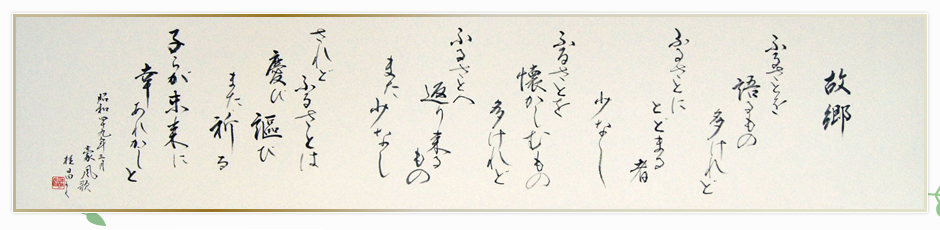 故郷
ふるさとを
語るもの
多けれど
ふるさとに
とどまる
者
少なし
ふるさとを
懐かしむもの
多けれど
ふるさとへ
返り来る
もの
また少なし
されど
ふるさとは
慶び謳び
また祈る
子らが未来に
幸あれかしと
昭和四十九年二月
豪風歌